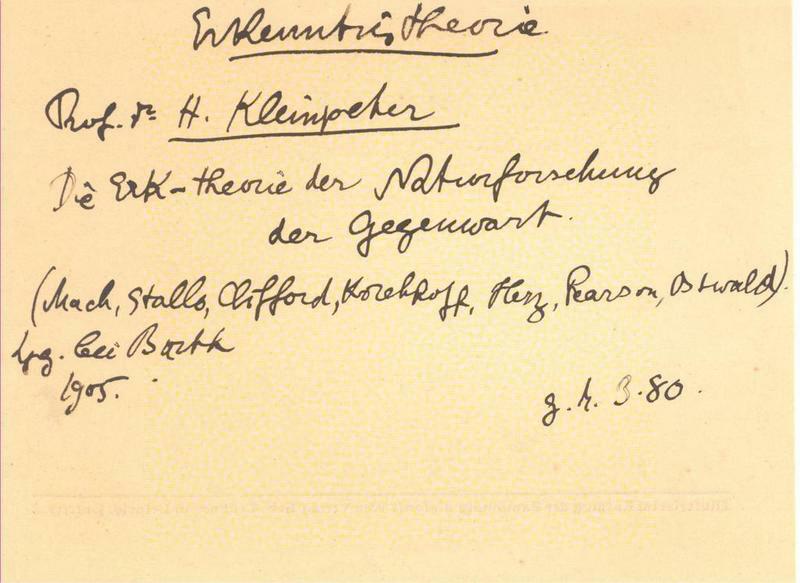 Erkenntnistheorie
Prof. Dr H. Kleinpeter
Die Erk-theorie der Naturforschung
der Gegenwart.
(Mach, Stallo, Clifford, Kirchhoff, Herz, Pearson, Ostwald).
Lpg. bei Barth
1905.
3.80.